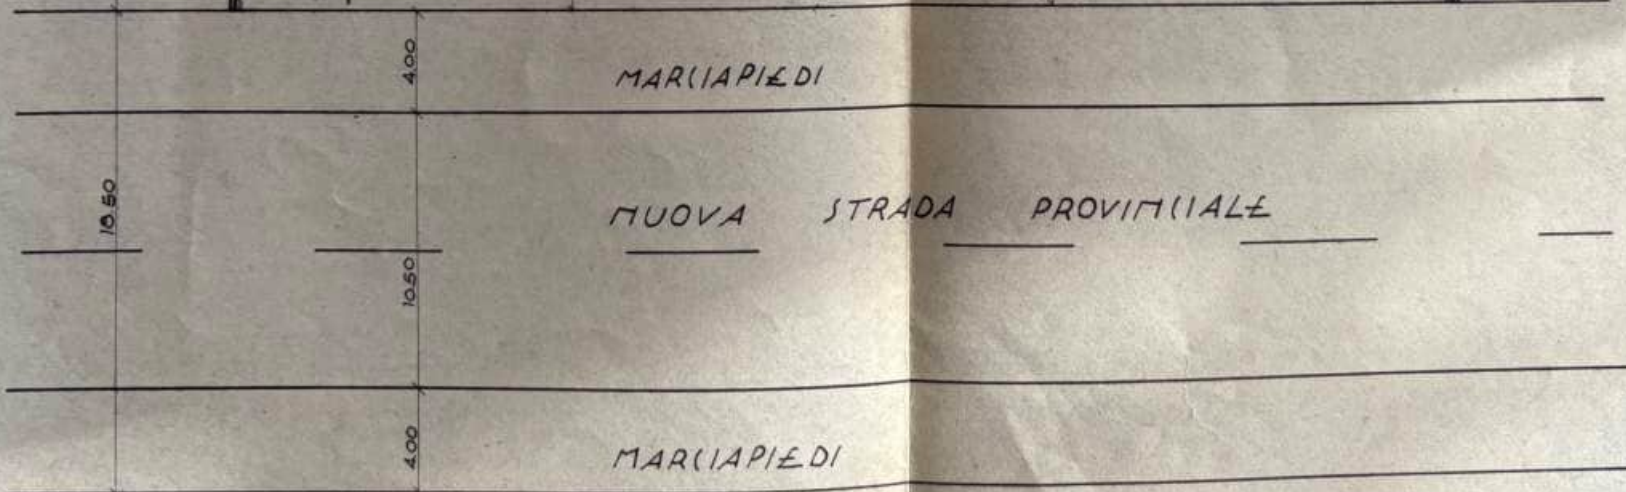 4.00
MARCIAPIEDI
18.50
NUOVA STRADA PROVINCIALE
10.50
4.00
MARCIAPIEDI